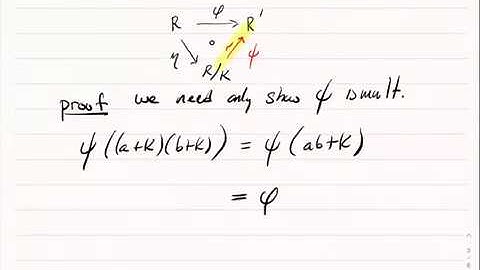 R φ R'
η ∘ ~ ψ
R/K
proof we need only show ψ is mult.
ψ((a+K)(b+K)) = ψ(ab+K)
= φ